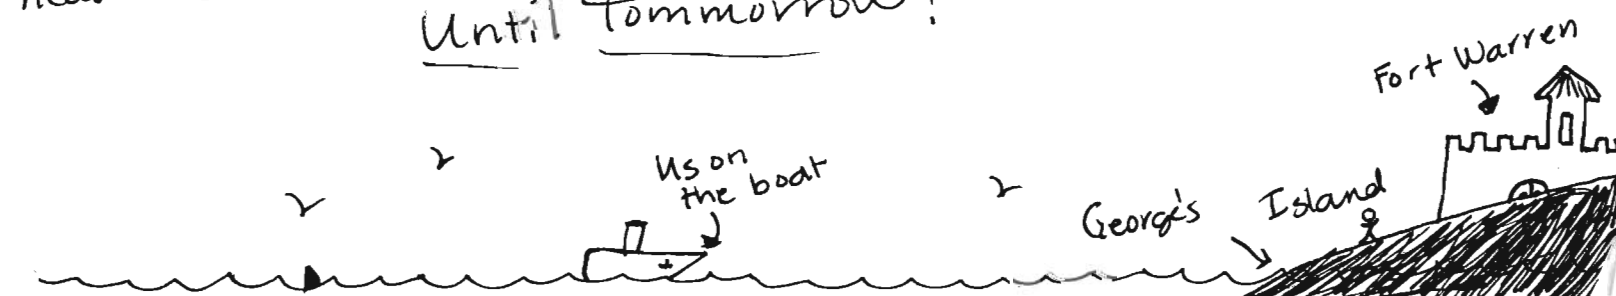 Until Tommorrow!
Fort Warren
Us on
the boat
George's Island